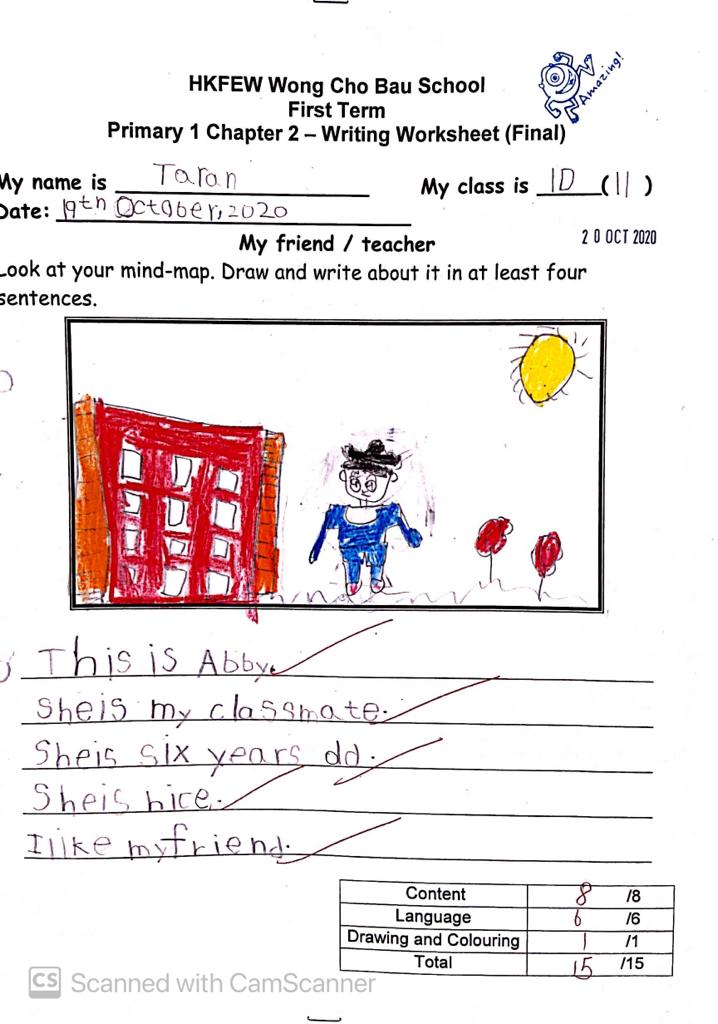 Amazing!
HKFEW Wong Cho Bau School
First Term
Primary 1 Chapter 2 – Writing Worksheet (Final)
My name is Taran My class is 1D (11)
Date: 19th October, 2020
20 OCT 2020
My friend / teacher
Look at your mind-map. Draw and write about it in at least four
sentences.
This is Abby.
She is my classmate.
She is six years old.
She is nice.
I like my friend.
Content 8 /8
Language 6 /6
Drawing and Colouring 1 /1
Total 15 /15
CS Scanned with CamScanner